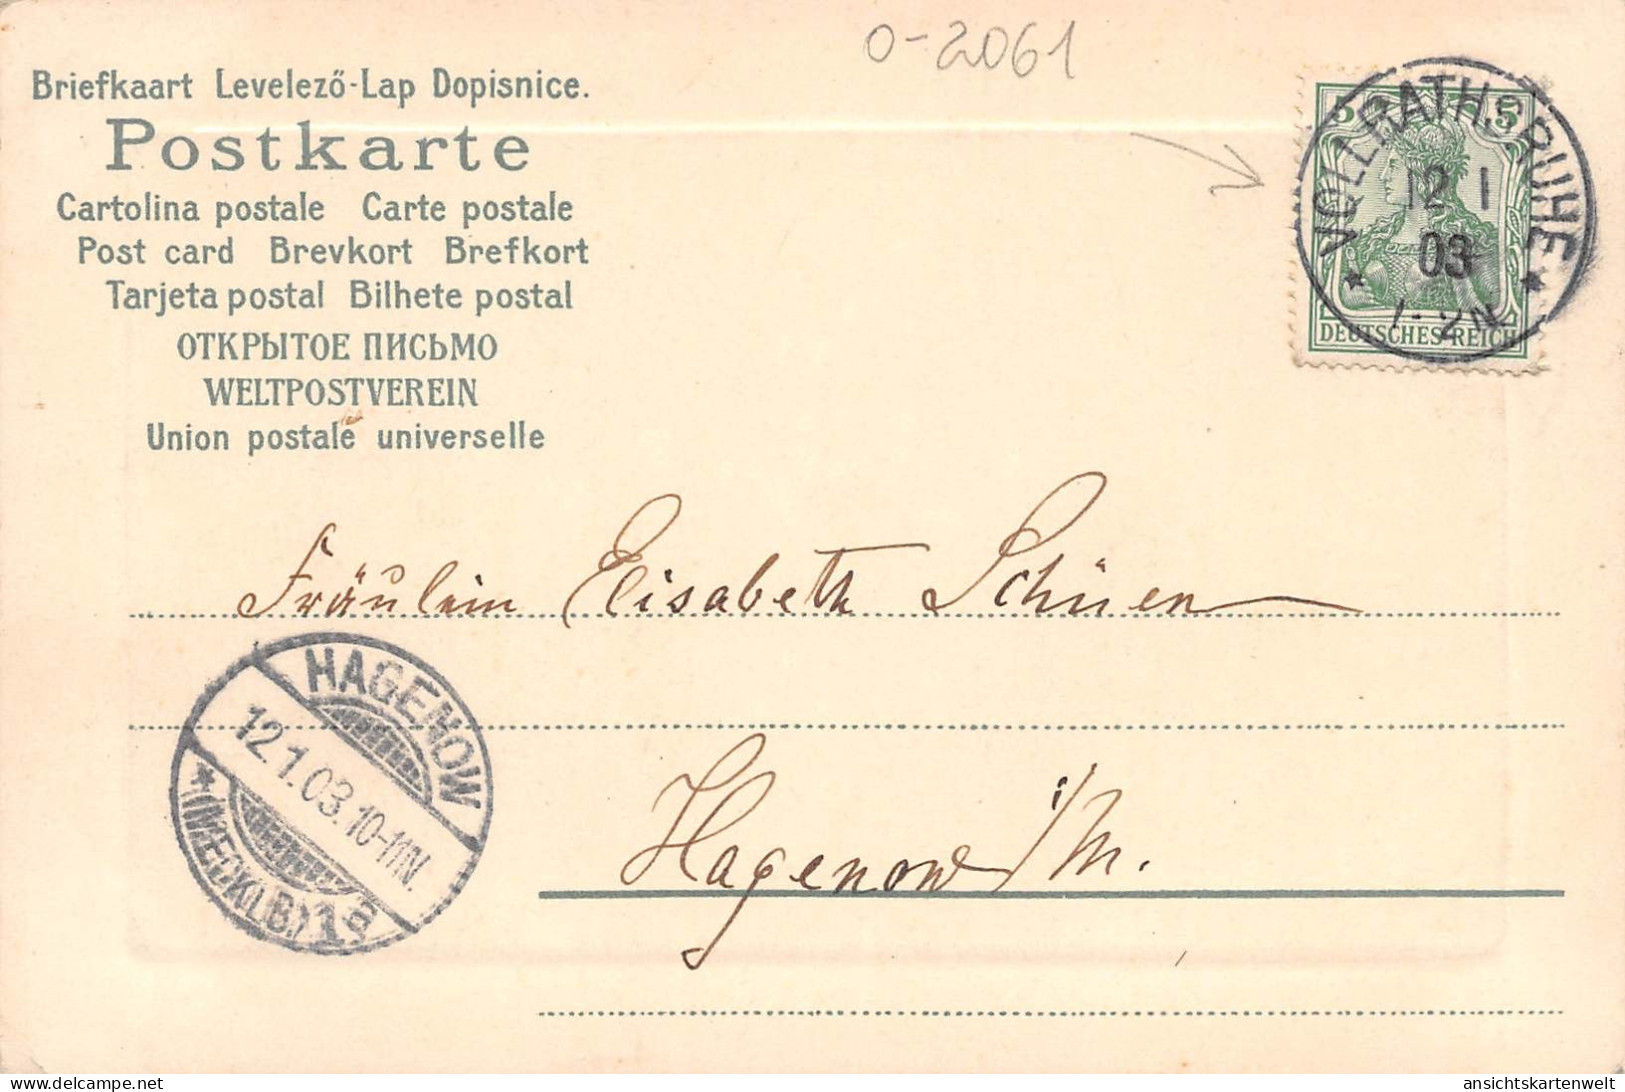 O-2061
Briefkaart Levelező-Lap Dopisnice.
Postkarte
Cartolina postale Carte postale
Post card Brevkort Brefkort
Tarjeta postal Bilhete postal
ОТКРЫТОЕ ПИСЬМО
WELTPOSTVEREIN
Union postale universelle
5 5
DEUTSCHES REICH
VOLLRATHSRUHE
12 1
03
1-2N.
Fräulein Elisabeth Schüen
HAGENOW
12.1.03.10-11N.
(MECKLB.) 1a
Hagenow i/M.
delcampe.net
ansichtskartenwelt